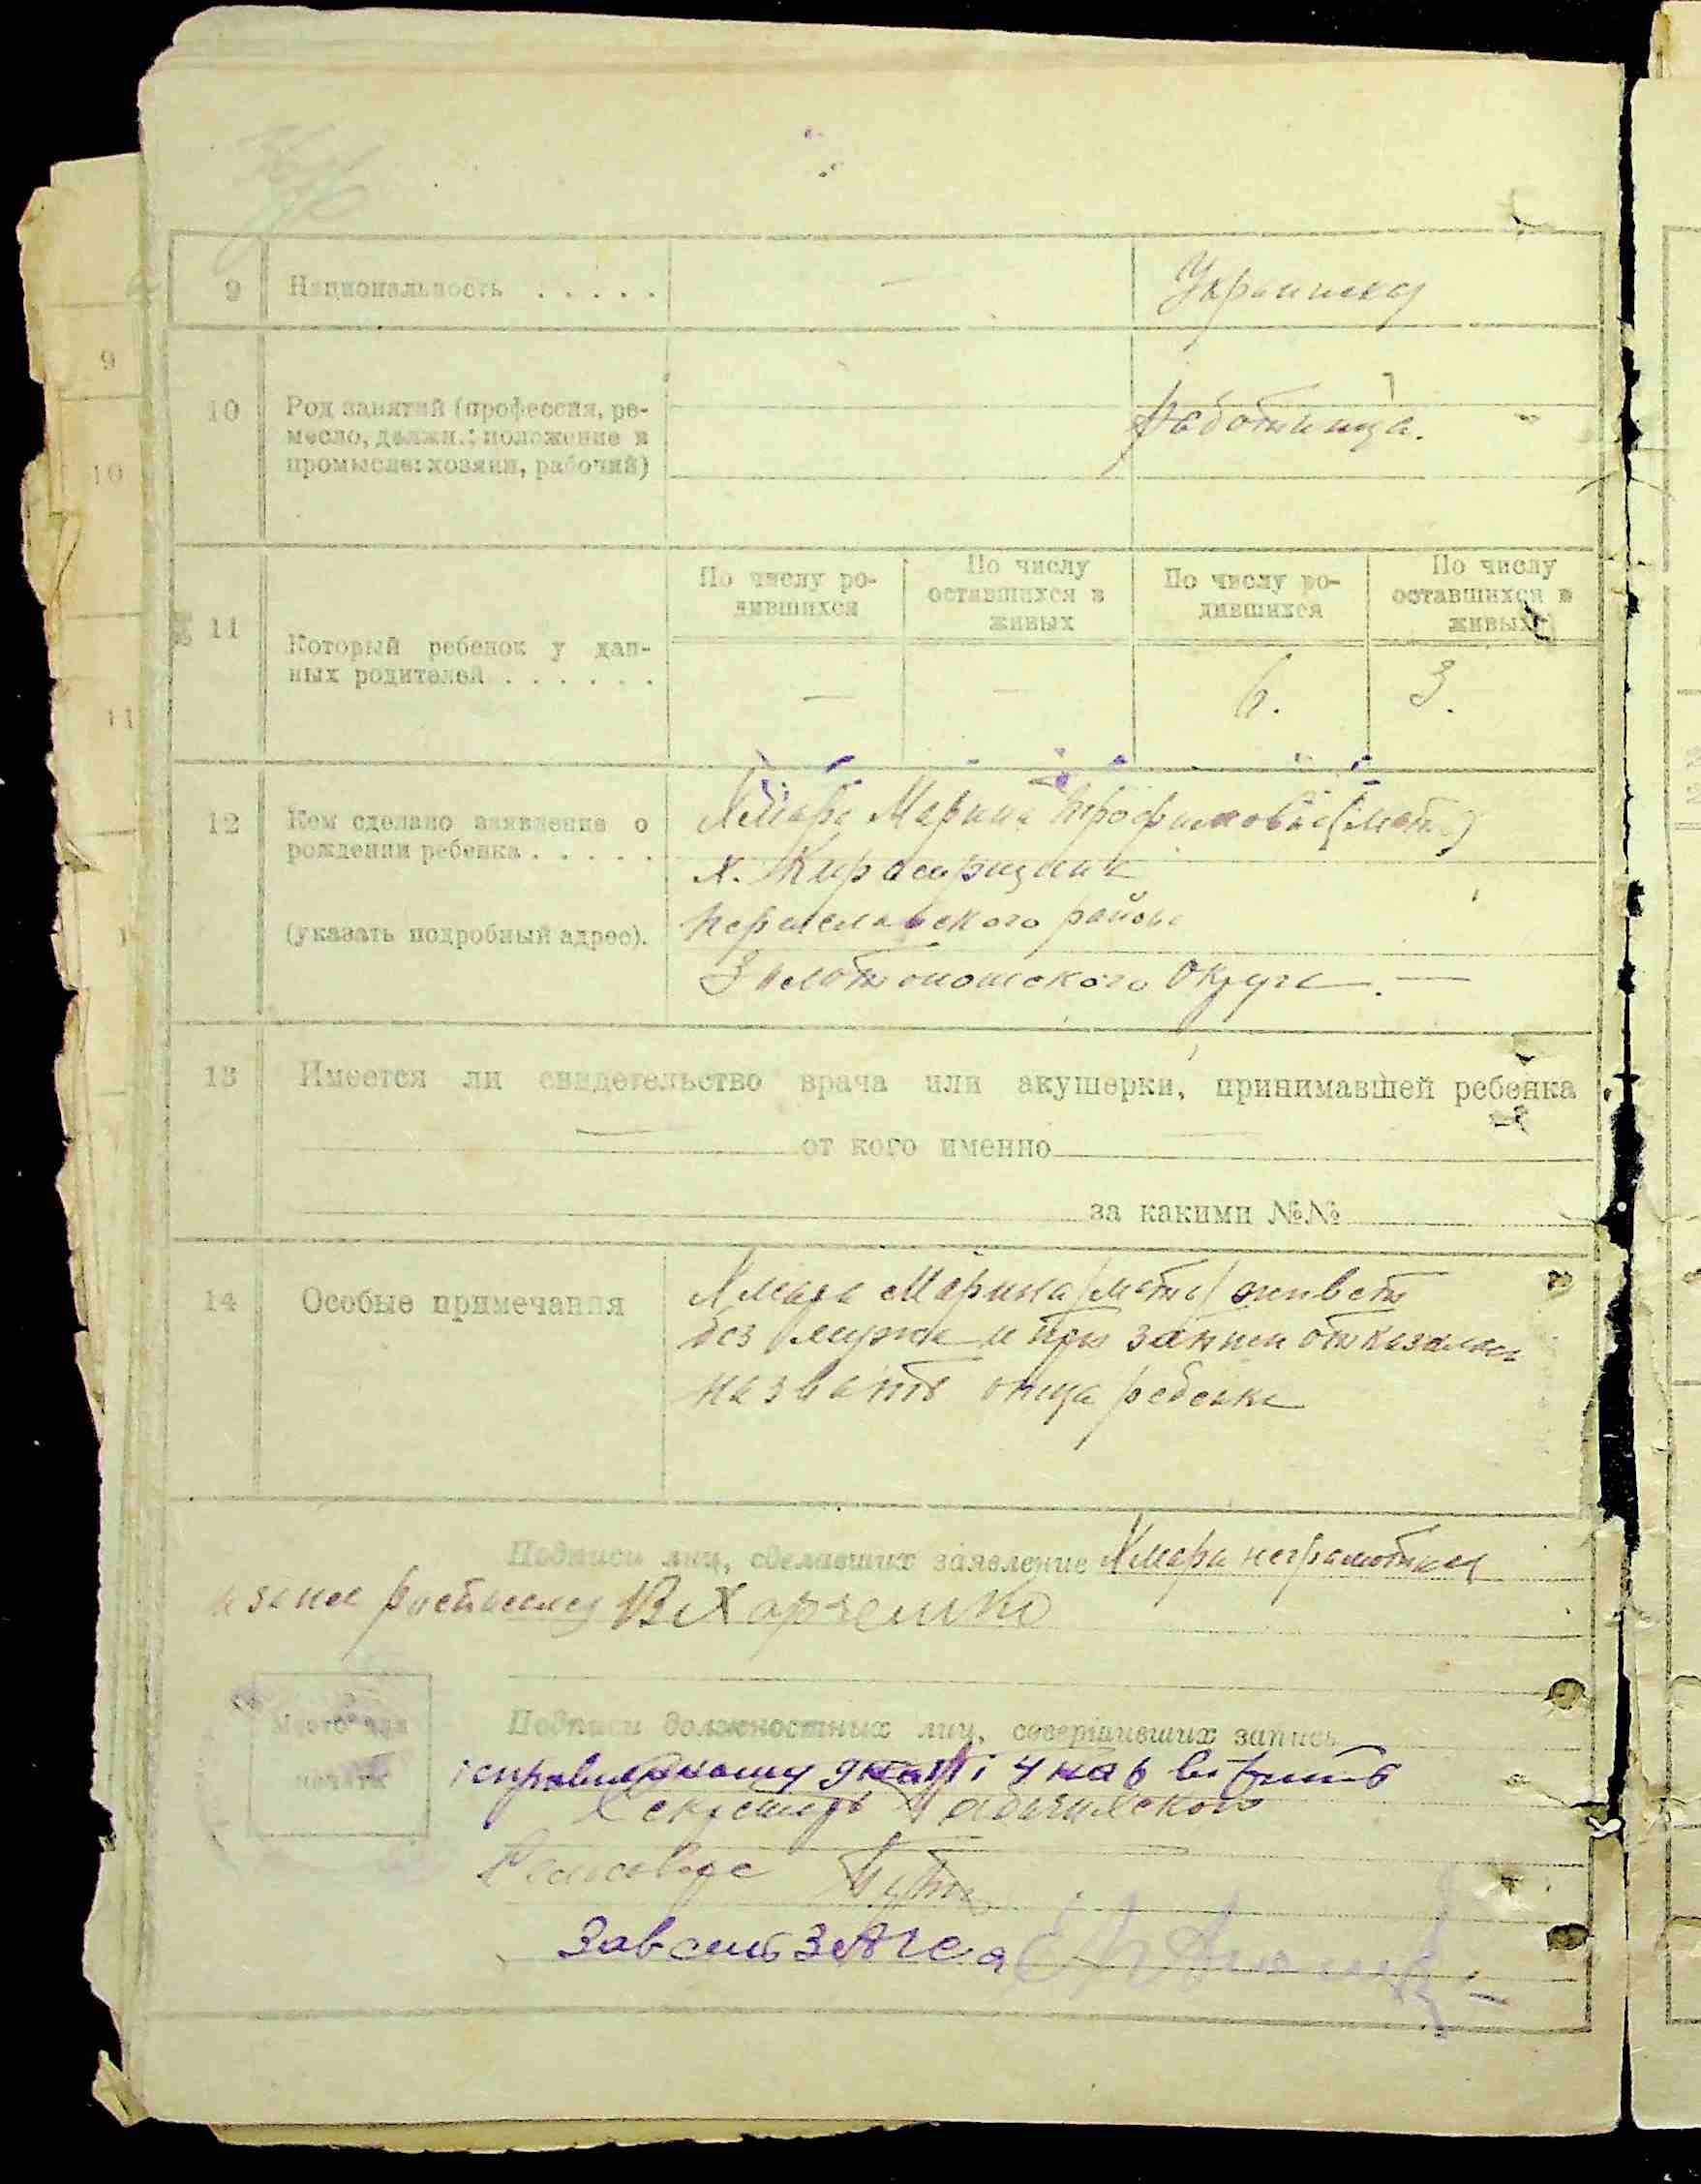 9 Национальность . . . . . — Украинка
10 Род занятий (профессия, ре-
месло, должн.: положение в
промысле: хозяин, рабочий)
Работница.
11 Который ребенок у дан-
ных родителей . . . . . .
По числу ро-
дившихся
По числу
оставшихся в
живых
По числу ро-
дившихся
По числу
оставшихся в
живых
— — 6. 3.
12 Кем сделано заявление о
рождении ребенка . . . . .
(указать подробный адрес).
Хмара Марина Трофимовна (мать)
х.
Переяславского района
Золотоношского Округа. —
13 Имеется ли свидетельство врача или акушерки, принимавшей ребенка
— от кого именно —
за какими №№
14 Особые примечания
Хмара Марина (мать) живет
без мужа и при записи отказалась
назвать отца ребенка
Подписи лиц, сделавших заявление Хмара неграмотная
а за нее расписался В Харченко
Место для
печати
Подписи должностных лиц, совершивших запись
Секретарь
Сельсовета
Зав ЗАГСа
9
10
11